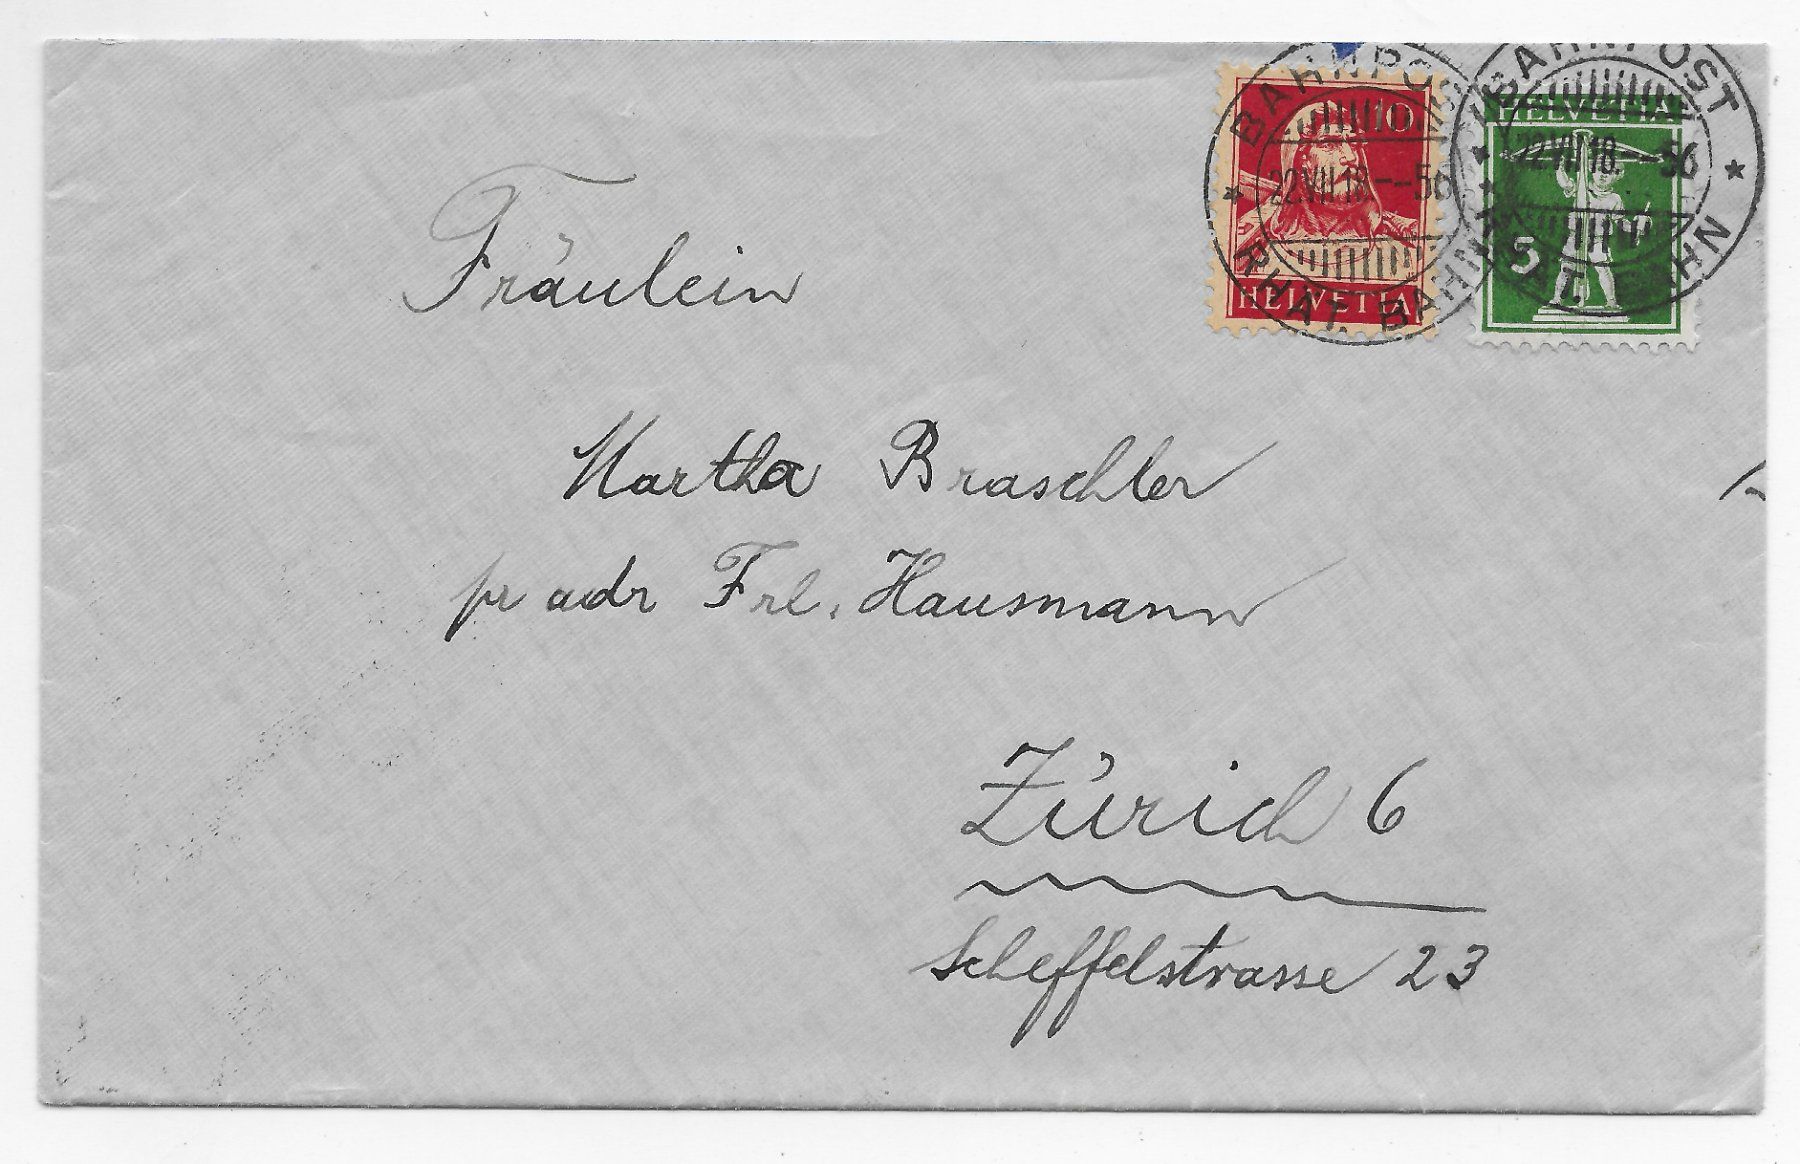 BAHNPOST
22.VII.18.--56
RHÄT. BAHN
10
HELVETIA
BAHNPOST
22.VII.18.--56
RHÄT. BAHN
HELVETIA
5
Fräulein
Martha Braschler
pr adr Frl. Hausmann
Zürich 6
Scheffelstrasse 23